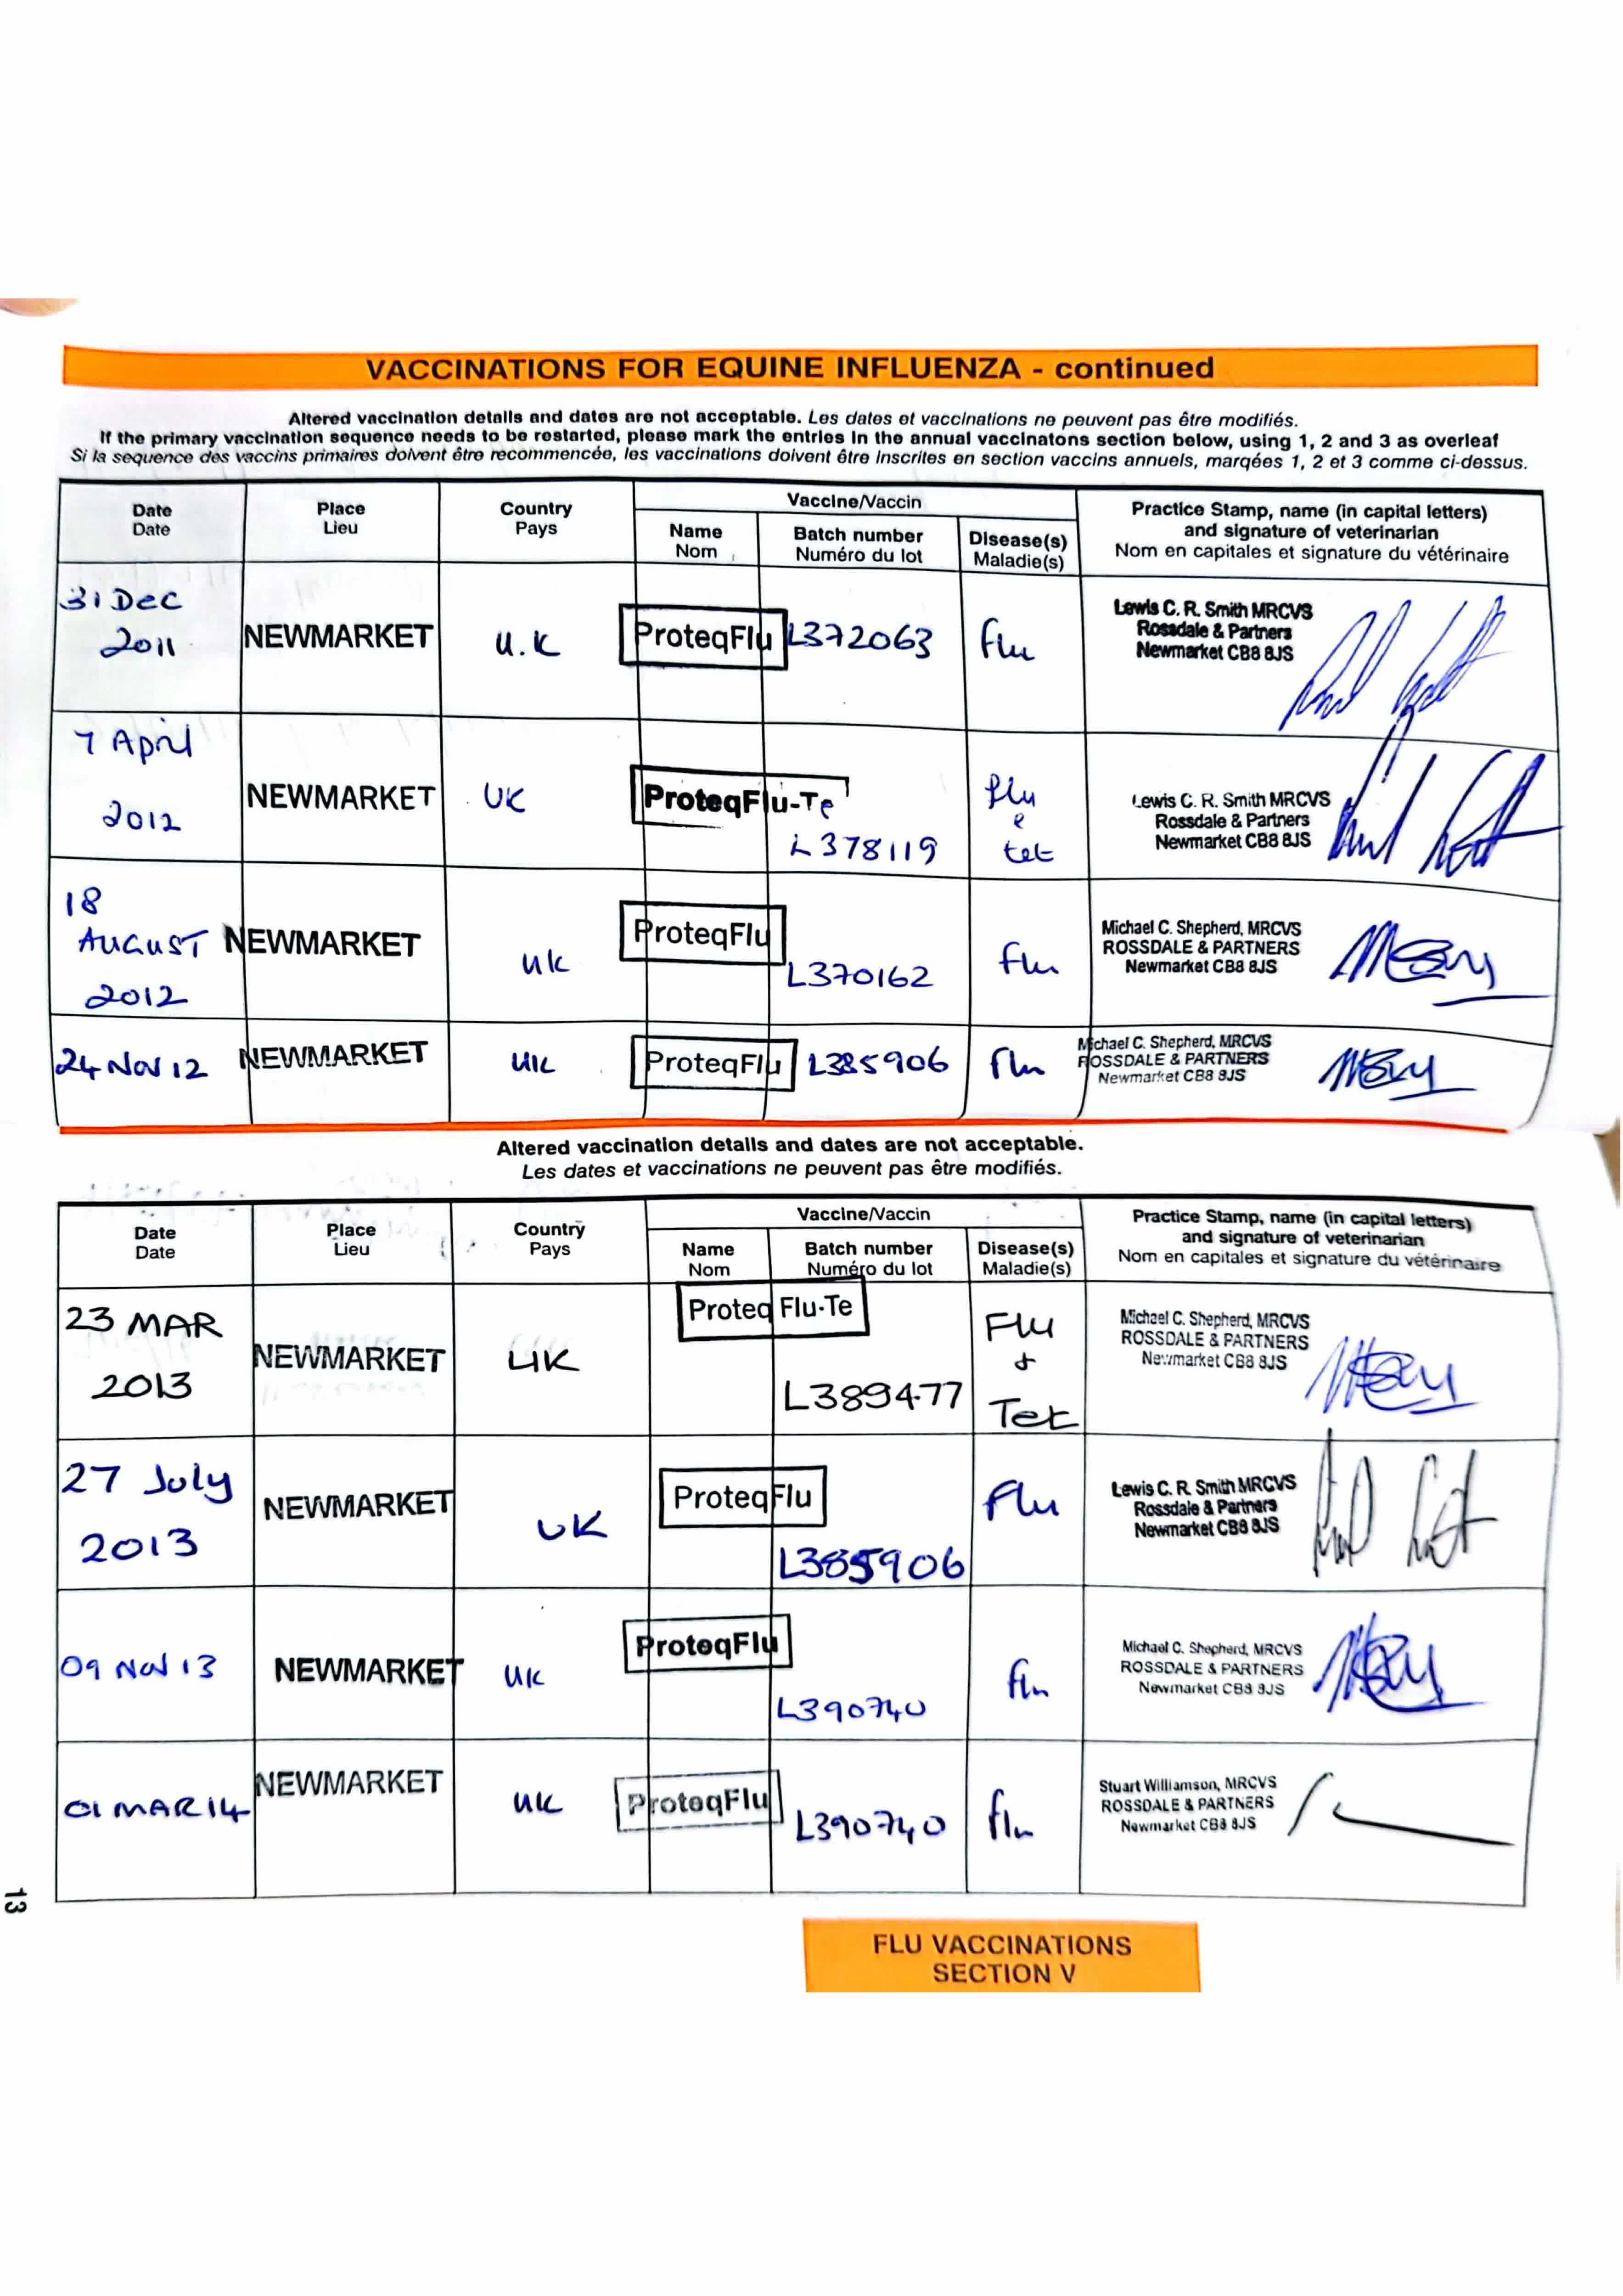 VACCINATIONS FOR EQUINE INFLUENZA - continued
Altered vaccination details and dates are not acceptable. Les dates et vaccinations ne peuvent pas être modifiés.
If the primary vaccination sequence needs to be restarted, please mark the entries in the annual vaccinatons section below, using 1, 2 and 3 as overleaf
Si la sequence des vaccins primaires doivent être recommencée, les vaccinations doivent être inscrites en section vaccins annuels, marqées 1, 2 et 3 comme ci-dessus.
Date
Date
Place
Lieu
Country
Pays
Vaccine/Vaccin
Name
Nom
Batch number
Numéro du lot
Disease(s)
Maladie(s)
Practice Stamp, name (in capital letters)
and signature of veterinarian
Nom en capitales et signature du vétérinaire
31 Dec
2011
NEWMARKET
U.K
ProteqFlu
L372063
Flu
Lewis C. R. Smith MRCVS
Rossdale & Partners
Newmarket CB8 8JS
7 April
2012
NEWMARKET
UK
ProteqFlu-Te
L378119
Flu
e
tet
Lewis C. R. Smith MRCVS
Rossdale & Partners
Newmarket CB8 8JS
18
AUGUST
2012
NEWMARKET
UK
ProteqFlu
L370162
Flu
Michael C. Shepherd, MRCVS
ROSSDALE & PARTNERS
Newmarket CB8 8JS
24 Nov 12
NEWMARKET
UK
ProteqFlu
L385906
Flu
Michael C. Shepherd, MRCVS
ROSSDALE & PARTNERS
Newmarket CB8 8JS
Altered vaccination details and dates are not acceptable.
Les dates et vaccinations ne peuvent pas être modifiés.
Date
Date
Place
Lieu
Country
Pays
Vaccine/Vaccin
Name
Nom
Batch number
Numéro du lot
Disease(s)
Maladie(s)
Practice Stamp, name (in capital letters)
and signature of veterinarian
Nom en capitales et signature du vétérinaire
23 MAR
2013
NEWMARKET
UK
Proteq Flu-Te
L389477
Flu
+
Tet
Michael C. Shepherd, MRCVS
ROSSDALE & PARTNERS
Newmarket CB8 8JS
27 July
2013
NEWMARKET
UK
ProteqFlu
L385906
Flu
Lewis C. R. Smith MRCVS
Rossdale & Partners
Newmarket CB8 8JS
09 Nov 13
NEWMARKET
UK
ProteqFlu
L390740
Flu
Michael C. Shepherd, MRCVS
ROSSDALE & PARTNERS
Newmarket CB8 8JS
01 MAR 14
NEWMARKET
UK
ProteqFlu
L390740
Flu
Stuart Williamson, MRCVS
ROSSDALE & PARTNERS
Newmarket CB8 8JS
13
FLU VACCINATIONS
SECTION V